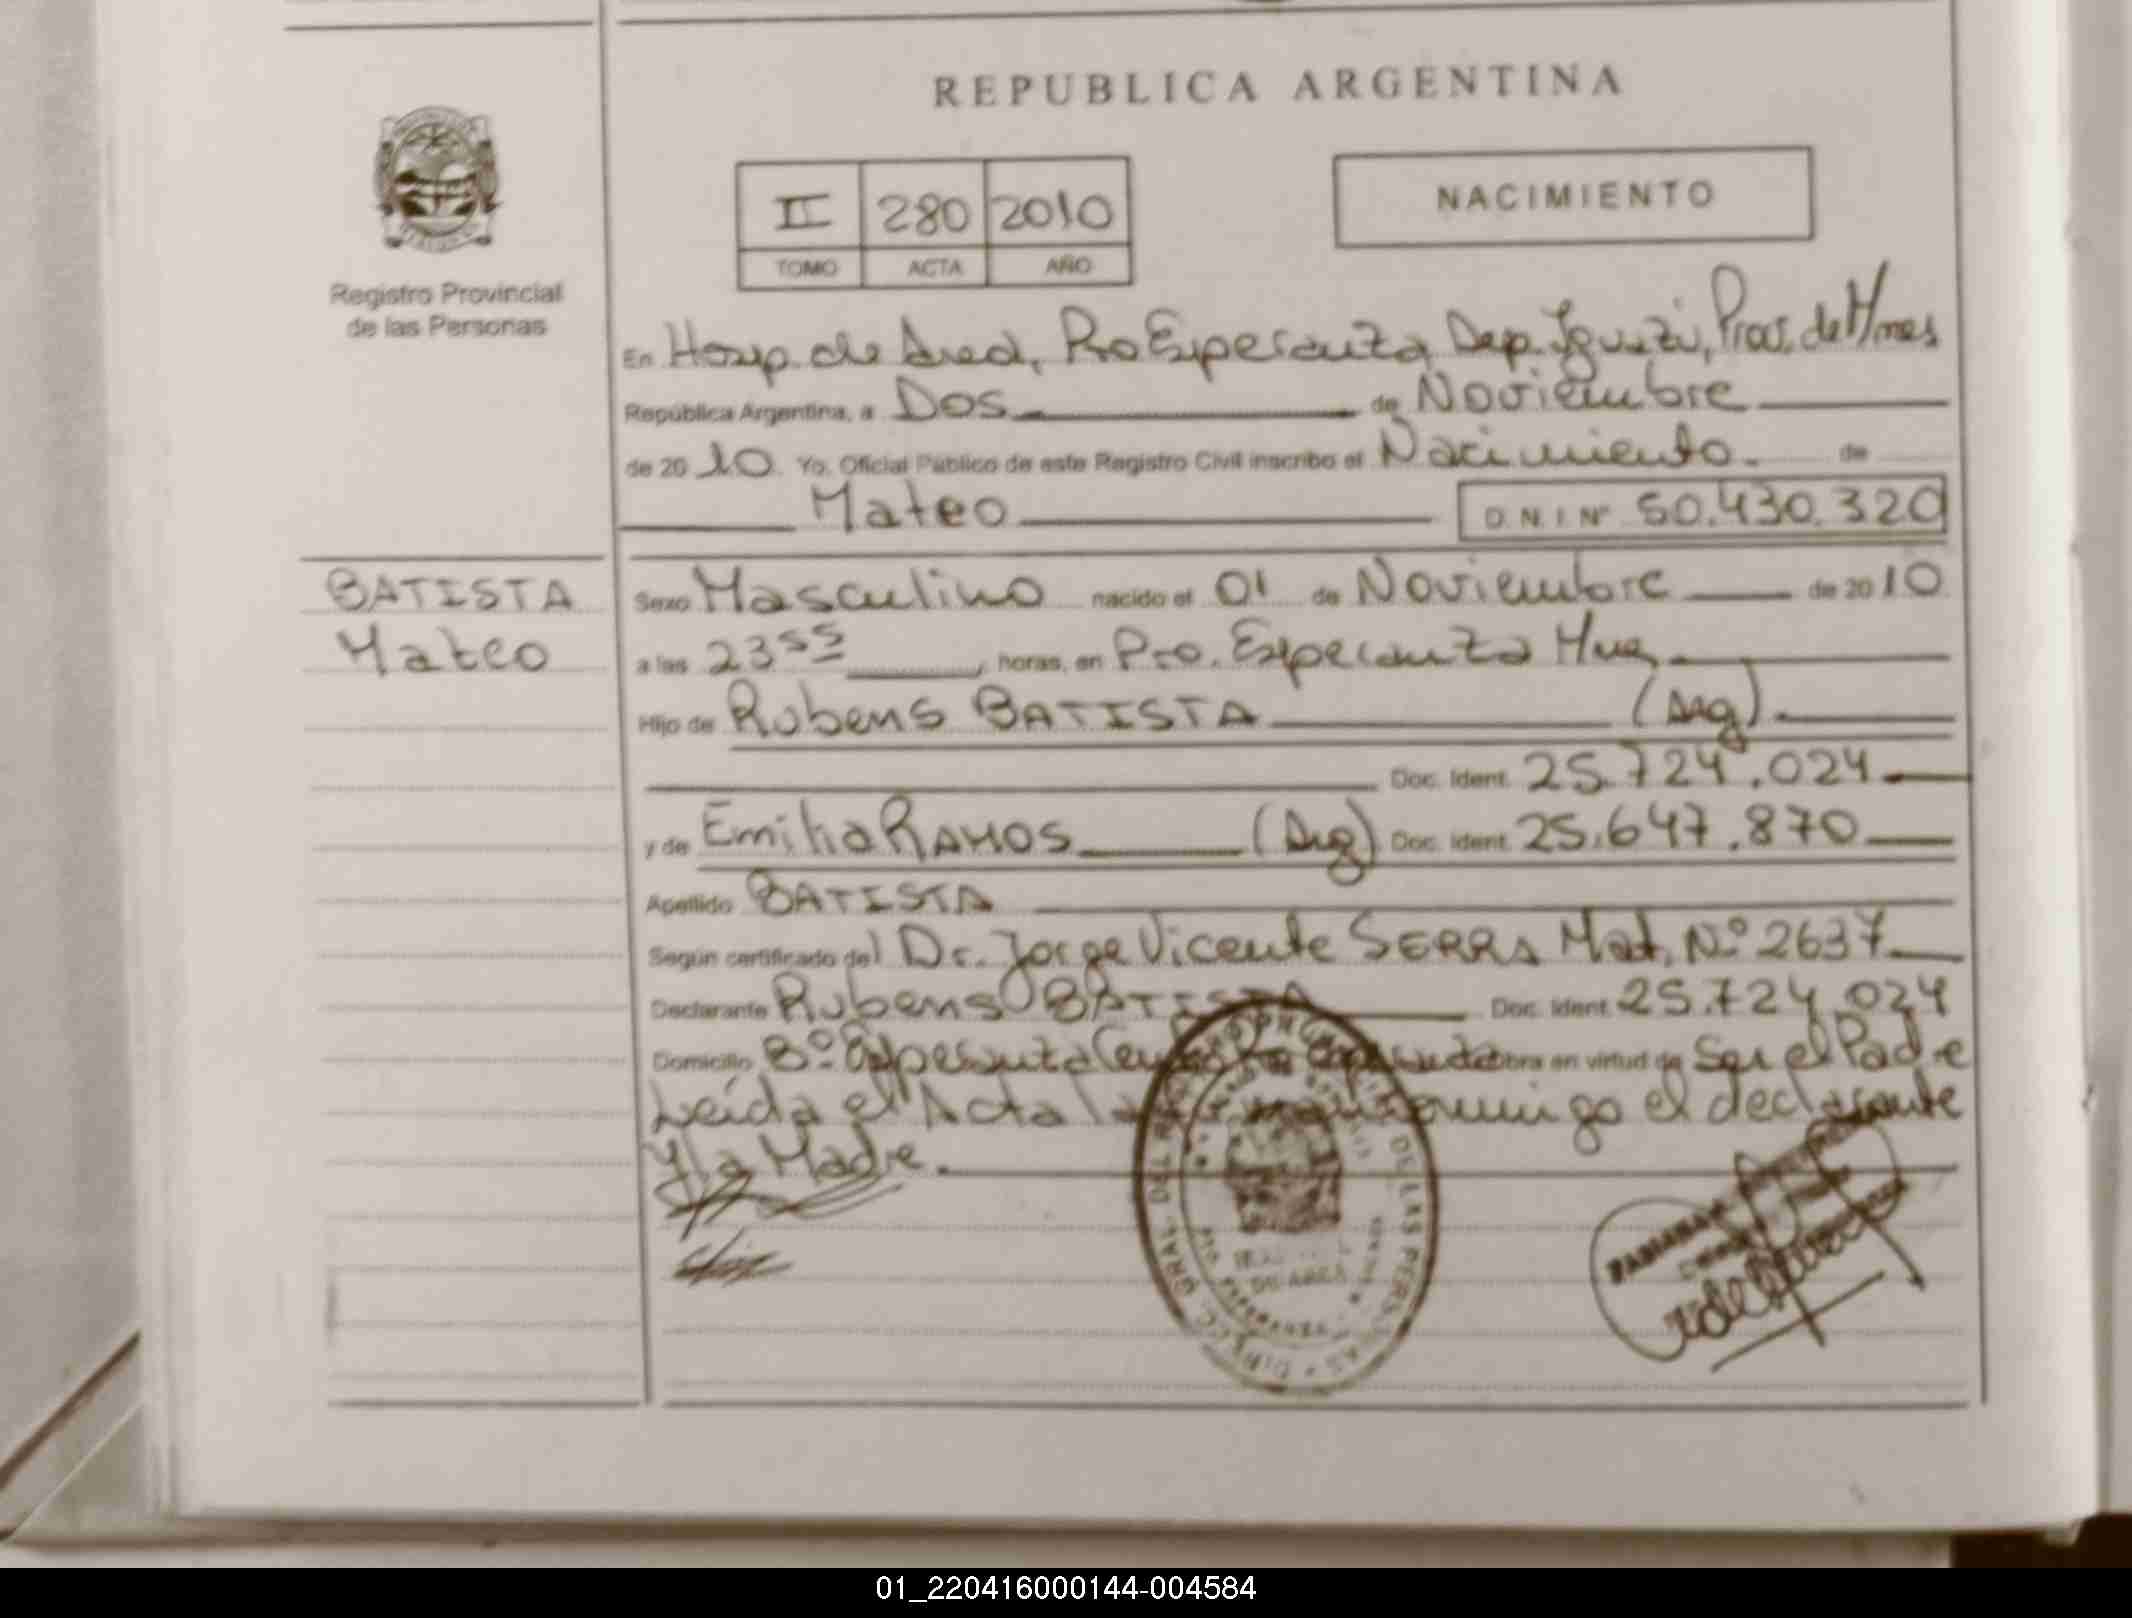 REPUBLICA ARGENTINA
II 280 2010
TOMO ACTA AÑO
NACIMIENTO
Registro Provincial
de las Personas
En Hosp. de Area, Pto Esperanza, Dep. Iguazú, Prov. de Mnes
República Argentina, a Dos de Noviembre
de 2010 Yo, Oficial Público de este Registro Civil inscribo el Nacimiento. de
Mateo D.N.I Nº 50.430.320
BATISTA
Mateo
Sexo Masculino nacido el 01 de Noviembre de 2010
a las 23⁵⁵ horas, en Pto. Esperanza Mnes
Hijo de Rubens BATISTA (Arg).
Doc. Ident. 25.724.024
y de Emilia RAMOS (Arg) Doc. Ident. 25.647.870
Apellido BATISTA
Según certificado del Dr. Jorge Vicente SERRA Mat. Nº 2637
Declarante Rubens BATISTA Doc. Ident. 25.724.024
Domicilio Bº Esperanza Obra en virtud de Ser el Padre
Leída el Acta la el declarante
y la Madre.
DE AREA
01_220416000144-004584